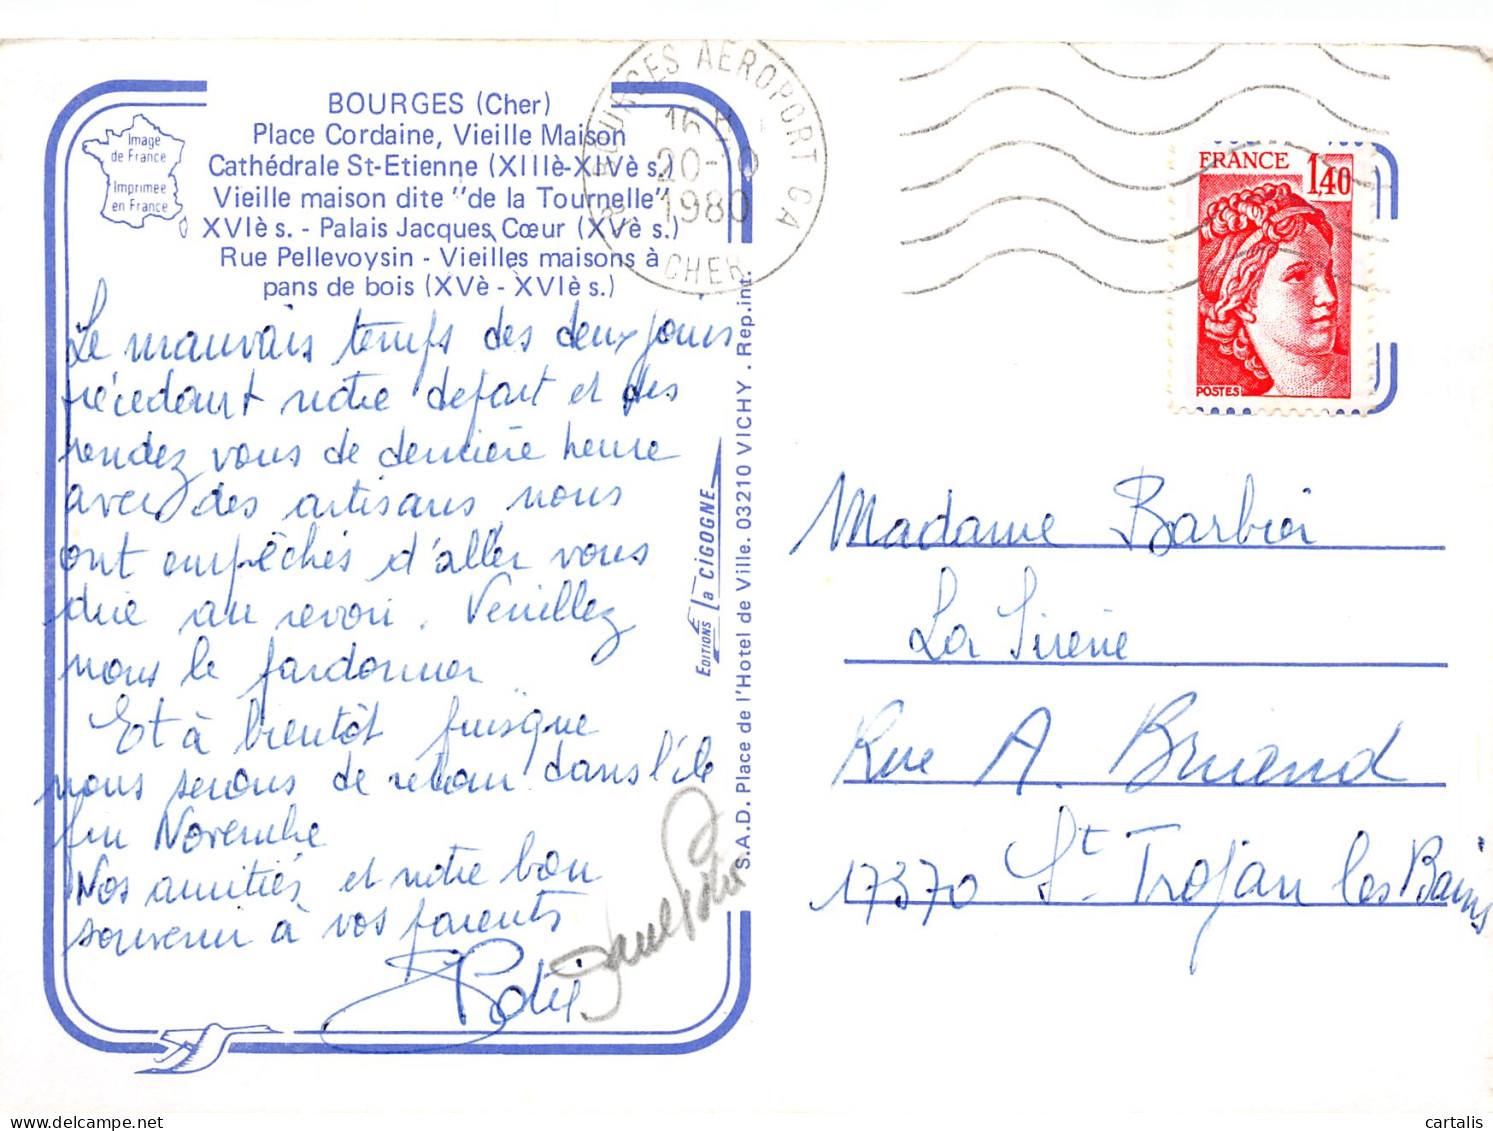 BOURGES (Cher)
Place Cordaine, Vieille Maison
Cathédrale St-Etienne (XIIIè-XIVè s.)
Vieille maison dite "de la Tournelle"
XVIè s. - Palais Jacques Cœur (XVè s.)
Rue Pellevoysin - Vieilles maisons à
pans de bois (XVè - XVIè s.)
Image
de France
Imprimée
en France
BOURGES AEROPORT CA
16 H
1980
CHER
FRANCE
1,40
POSTES
Le mauvais temps des deux jours
précédant notre départ et des
rendez vous de dernière heure
avec des artisans nous
ont empêchés d'aller vous
dire au revoir. Veuillez
nous le pardonner
Et à bientôt puisque
nous serons de retour dans l'île
fin Novembre
Nos amitiés et notre bon
souvenir à vos parents
EDITIONS la CIGOGNE
S.A.D. Place de l'Hotel de Ville. 03210 VICHY . Rep.int.
Madame Barbier
La Sirène
Rue A. Briand
17370 St Trojan les Bains
cartalis